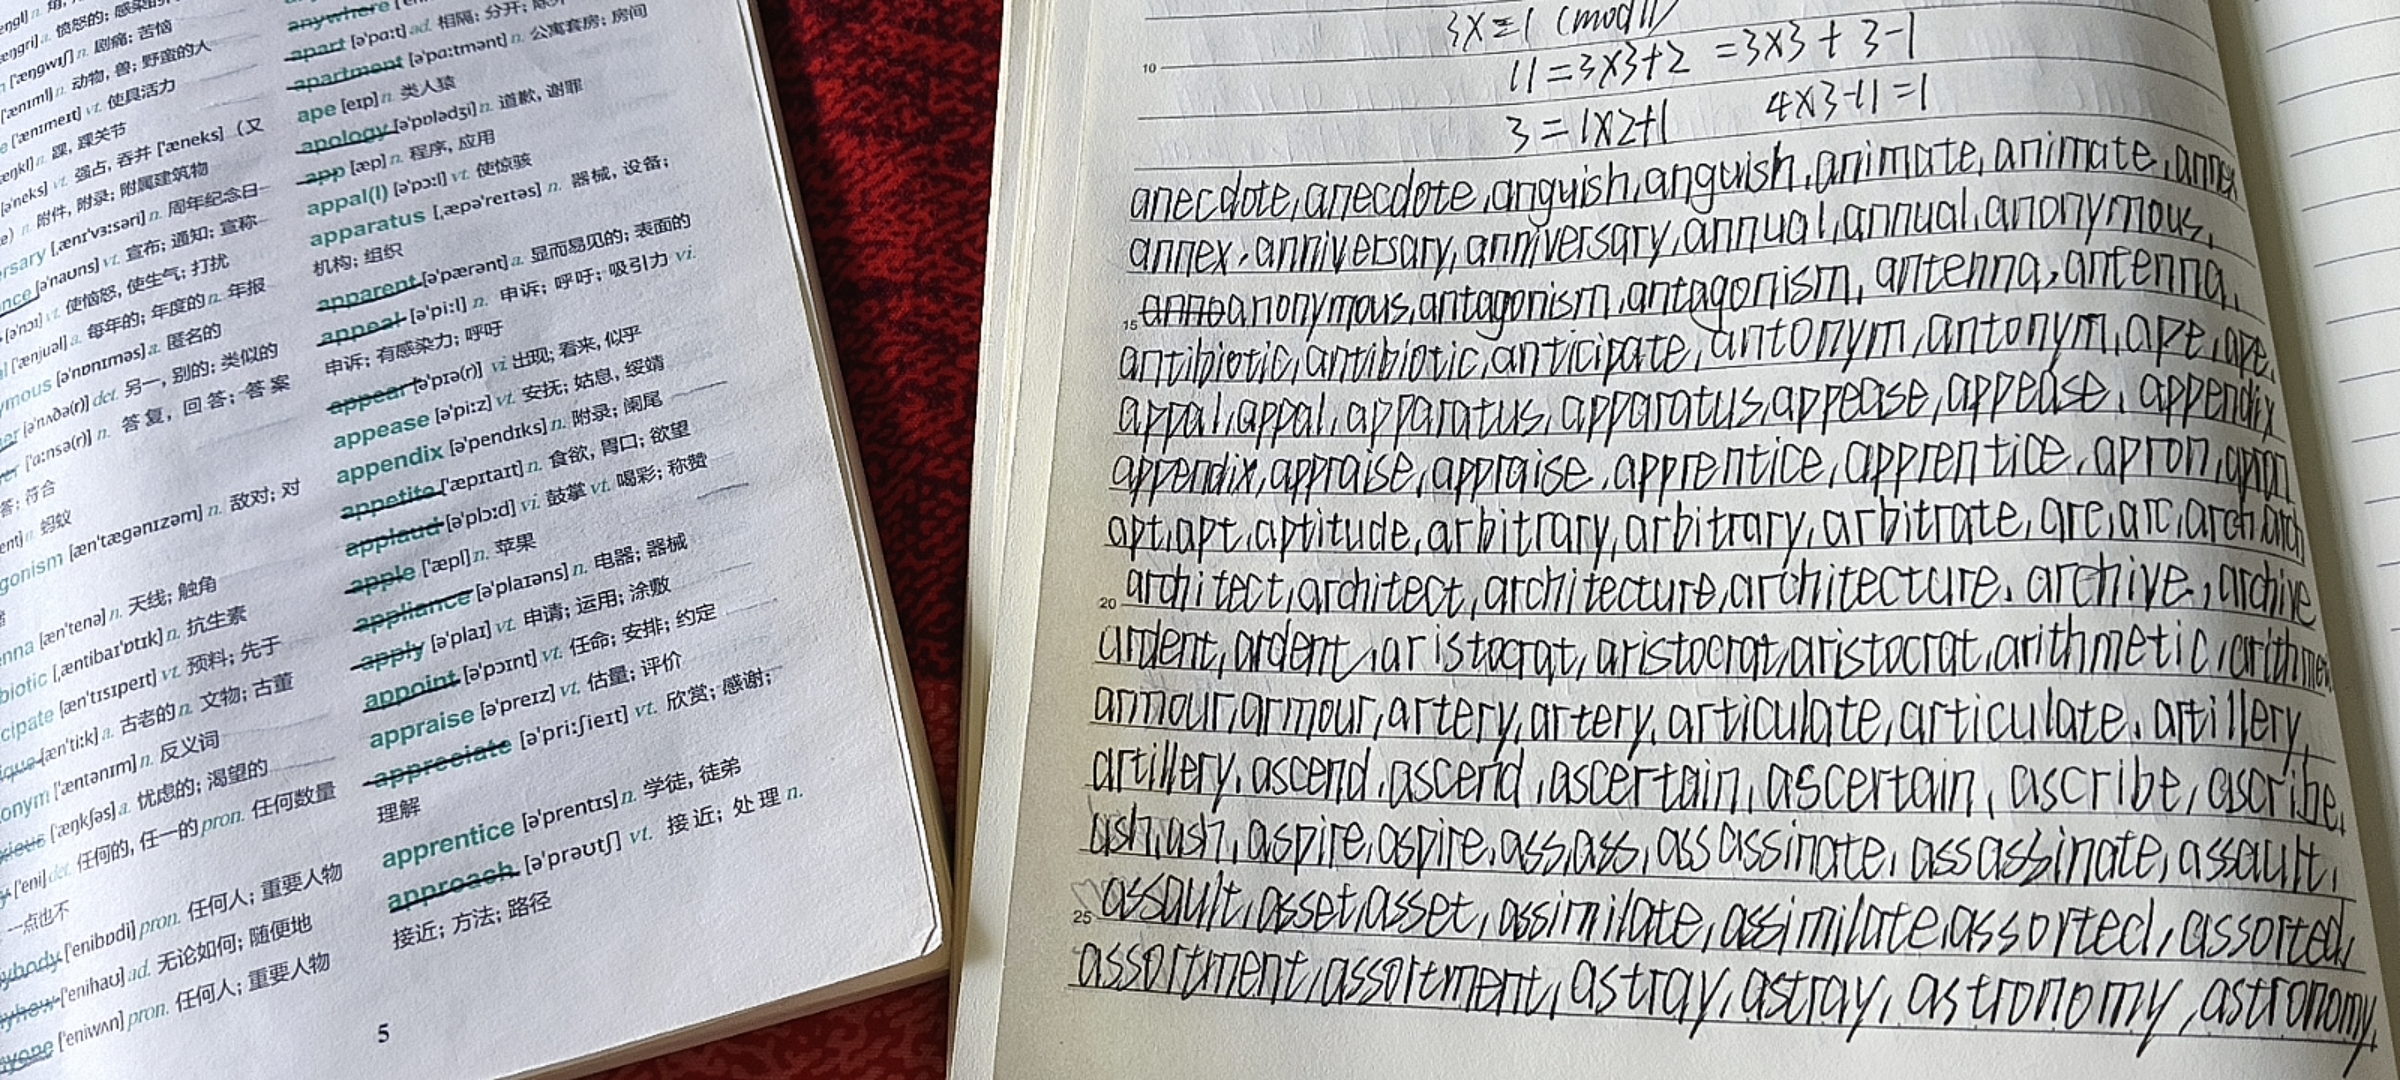 愤怒的; 感染的
n. 剧痛; 苦恼
n. 动物, 兽; 野蛮的人
['ænɪmeɪt] vt. 使具活力
n. 踝, 踝关节
vt. 强占, 吞并 ['æneks] (又
n. 附件, 附录; 附属建筑物
[ˌænɪ'vɜːsəri] n. 周年纪念日
[ə'naʊns] vt. 宣布; 通知; 宣称
[ə'nɔɪ] vt. 使恼怒, 使生气; 打扰
['ænjuəl] a. 每年的; 年度的 n. 年报
[ə'nɒnɪməs] a. 匿名的
[ə'nʌðə(r)] det. 另一, 别的; 类似的
['ɑːnsə(r)] n. 答复, 回答; 答案
答; 符合
n. 蚂蚁
[æn'tægənɪzəm] n. 敌对; 对
[æn'tenə] n. 天线; 触角
[ˌæntibaɪ'ɒtɪk] n. 抗生素
[æn'tɪsɪpeɪt] vt. 预料; 先于
[æn'tiːk] a. 古老的 n. 文物; 古董
['æntənɪm] n. 反义词
['æŋkʃəs] a. 忧虑的; 渴望的
['eni] det. 任何的, 任一的 pron. 任何数量
一点也不
['enibɒdi] pron. 任何人; 重要人物
['enihaʊ] ad. 无论如何; 随便地
['eniwʌn] pron. 任何人; 重要人物
anywhere
apart [ə'pɑːt] ad. 相隔; 分开;
apartment [ə'pɑːtmənt] n. 公寓套房; 房间
ape [eɪp] n. 类人猿
apology [ə'pɒlədʒi] n. 道歉, 谢罪
app [æp] n. 程序, 应用
appal(l) [ə'pɔːl] vt. 使惊骇
apparatus [ˌæpə'reɪtəs] n. 器械, 设备;
机构; 组织
apparent [ə'pærənt] a. 显而易见的; 表面的
appeal [ə'piːl] n. 申诉; 呼吁; 吸引力 vi.
申诉; 有感染力; 呼吁
appear [ə'pɪə(r)] vi. 出现; 看来, 似乎
appease [ə'piːz] vt. 安抚; 姑息, 绥靖
appendix [ə'pendɪks] n. 附录; 阑尾
appetite ['æpɪtaɪt] n. 食欲, 胃口; 欲望
applaud [ə'plɔːd] vi. 鼓掌 vt. 喝彩; 称赞
apple ['æpl] n. 苹果
appliance [ə'plaɪəns] n. 电器; 器械
apply [ə'plaɪ] vt. 申请; 运用; 涂敷
appoint [ə'pɔɪnt] vt. 任命; 安排; 约定
appraise [ə'preɪz] vt. 估量; 评价
appreciate [ə'priːʃieɪt] vt. 欣赏; 感谢;
理解
apprentice [ə'prentɪs] n. 学徒, 徒弟
approach [ə'prəʊtʃ] vt. 接近; 处理 n.
接近; 方法; 路径
5
3x≡1 (mod11)
10
11=3×3+2 =3×3+3-1
3=1×2+1 4×3-11=1
anecdote, anecdote, anguish, anguish, animate, animate, annex
annex, anniversary, anniversary, annual, annual, anonymous,
15 anno anonymous, antagonism, antagonism, antenna, antenna,
antibiotic, antibiotic, anticipate, antonym, antonym, ape, ape,
appal, appal, apparatus, apparatus, appease, appease, appendix
appendix, appraise, appraise, apprentice, apprentice, apron, apron
apt, apt, aptitude, arbitrary, arbitrary, arbitrate, arc, arc, arch, arch
20 architect, architect, architecture, architecture, archive, archive
ardent, ardent, aristocrat, aristocrat, aristocrat, arithmetic, arithme
armour, armour, artery, artery, articulate, articulate, artillery,
artillery, ascend, ascend, ascertain, ascertain, ascribe, ascribe,
ash, ash, aspire, aspire, ass, ass, assassinate, assassinate, assault,
25 assault, asset, asset, assimilate, assimilate, assorted, assorted,
assortment, assortment, astray, astray, astronomy, astronomy,